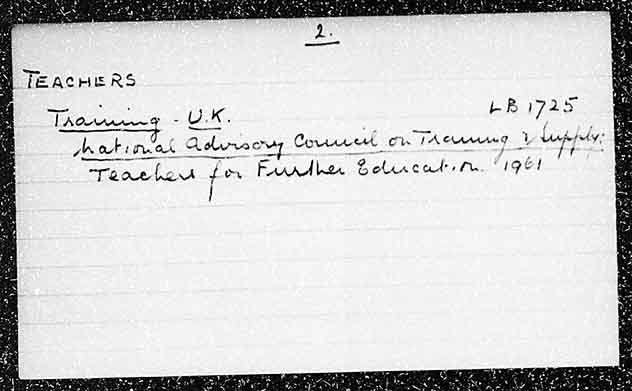 2.
TEACHERS
Training - U.K. LB 1725
National Advisory Council on Training & Supply:
Teachers for Further Education. 1961